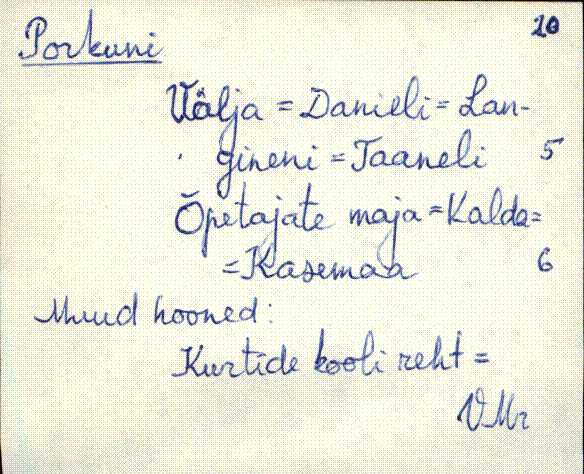 20
Porkuni
Välja = Danieli = Lan-
gineni = Taaneli 5
Õpetajate maja = Kalda =
= Kasemaa 6
Muud hooned:
Kurtide kooli reht =
VMr